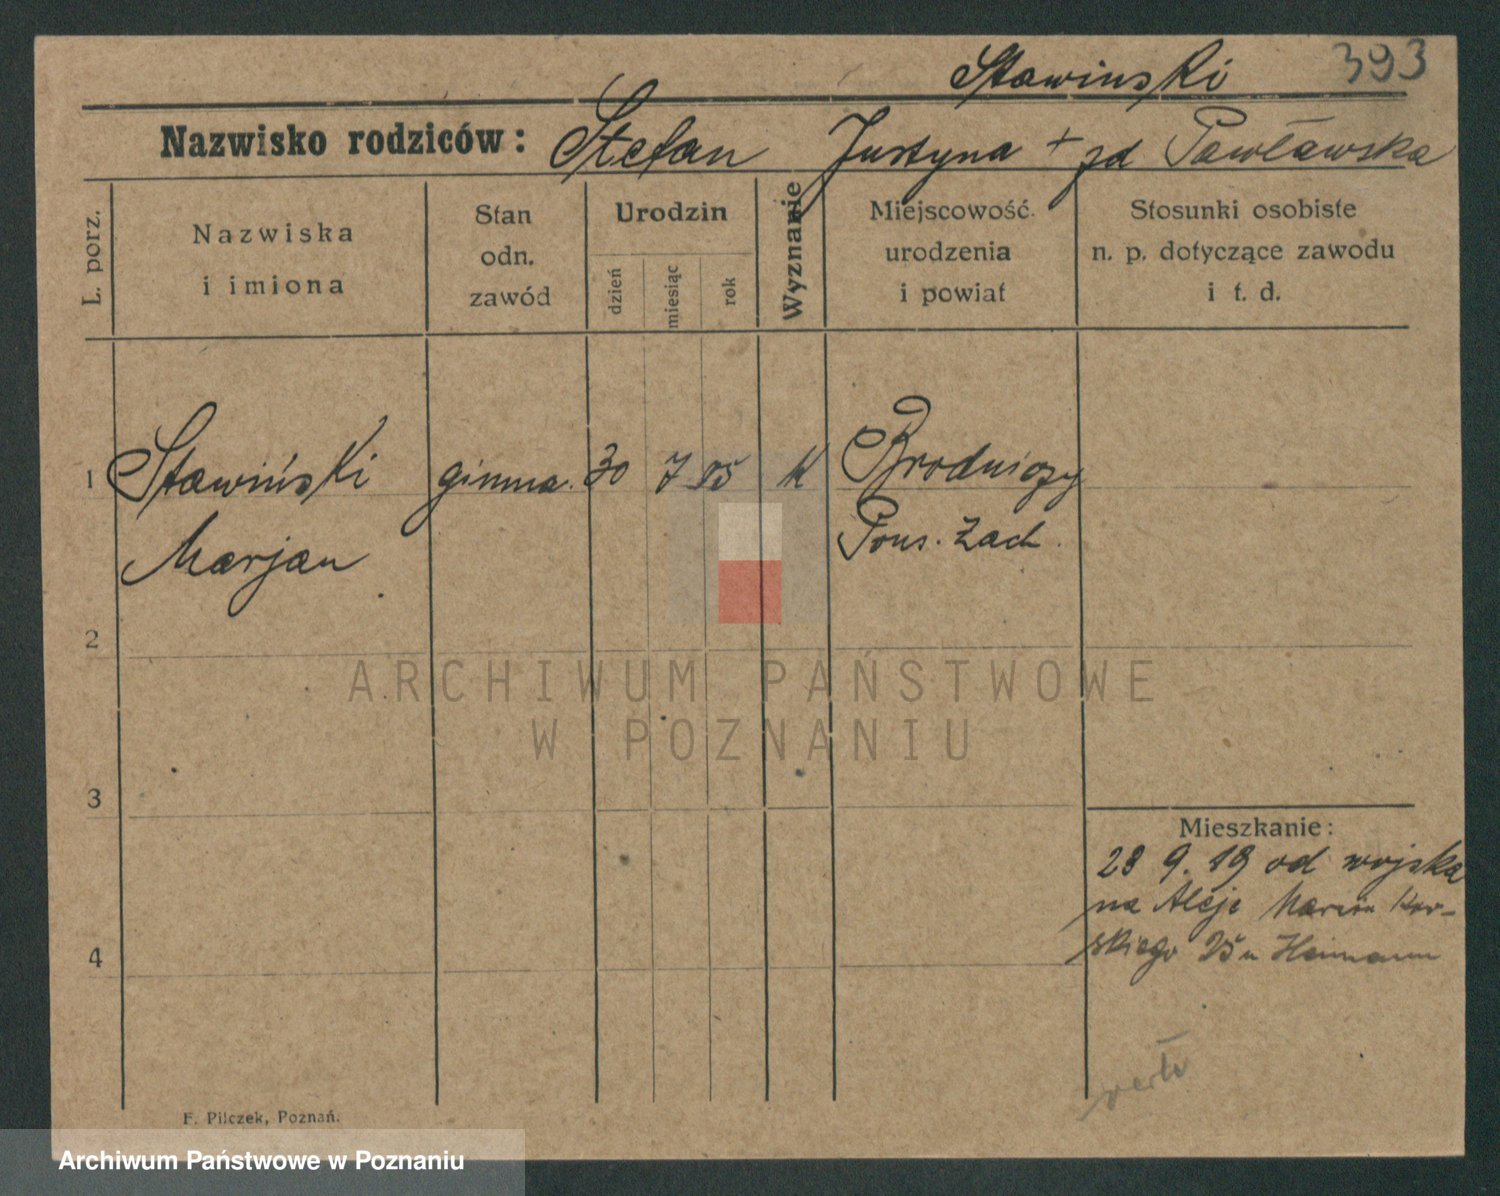 Stawinski 393
Nazwisko rodziców: Stefan Justyna + zd Pawławska
L. porz.
Nazwiska
i imiona
Stan
odn.
zawód
Urodzin
dzień
miesiąc
rok
Wyznanie
Miejscowość
urodzenia
i powiat
Stosunki osobiste
n. p. dotyczące zawodu
i t. d.
1 Stawiński gimna. 30 7 05 K
Marjan
Zach.
2
ARCHIWUM PAŃSTWOWE
W POZNANIU
3
Mieszkanie:
28 9. 19 od wojska
na Aleje Marcin
skiego 25 u Heimann
4
verte
F. Pilczek, Poznań.
Archiwum Państwowe w Poznaniu